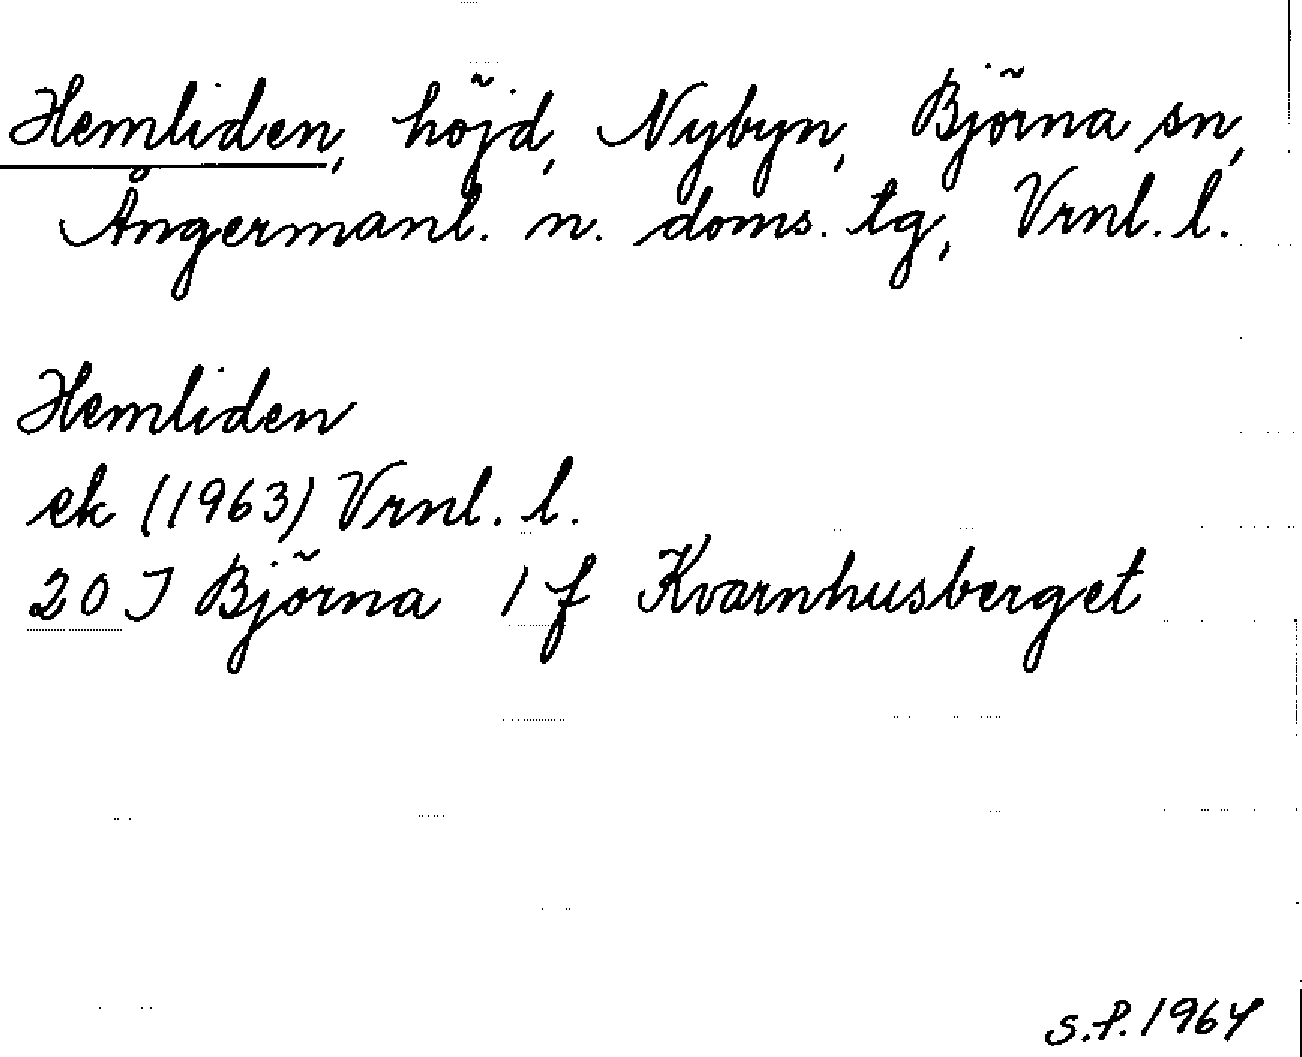 Hemliden, höjd, Nybyn, Björna sn,
Ångermanl. n. doms. tg, Vrnl. l.
Hemliden
ek (1963) Vrnl. l.
20 J Björna 1 f Kvarnhusberget
S.P. 1964